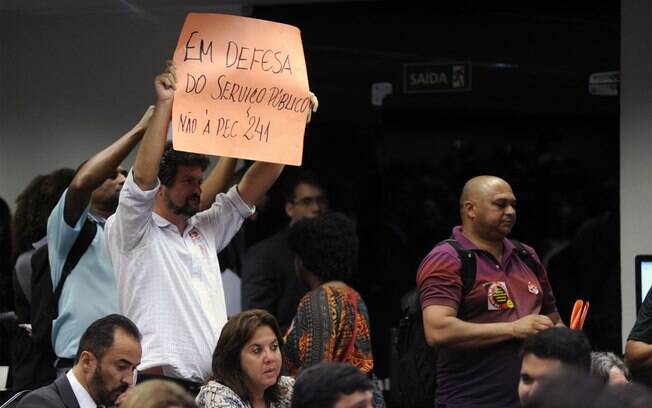 EM DEFESA
DO SERVIÇO PÚBLICO
NÃO À PEC 241
SAÍDA